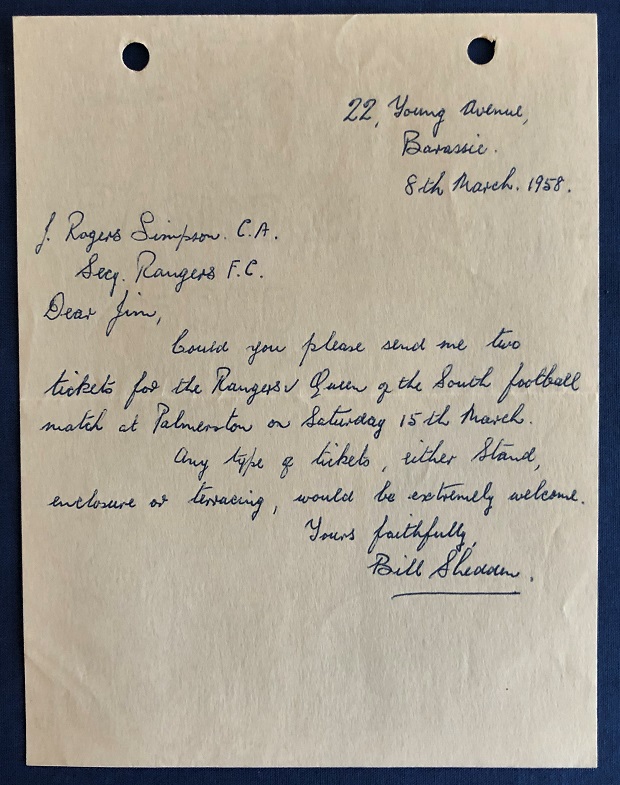 22, Young Avenue,
Barassie.
8th March. 1958.
J. Rogers Simpson. C.A.
Secy. Rangers F.C.
Dear Jim,
Could you please send me two
tickets for the Rangers v Queen of the South football
match at Palmerston on Saturday 15th March.
Any type of tickets, either Stand,
enclosure or terracing, would be extremely welcome.
Yours faithfully,
Bill Shedden.